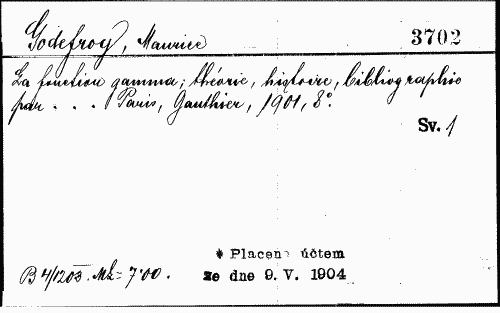 Godefroy, Maurice
3702
La fonction gamma; théorie, histoire, bibliographie
par . . . Paris, Gauthier, 1901, 8°.
Sv. 1
* Placeno účtem
ze dne 9. V. 1904
B 4/1203. Mk = 7·00.